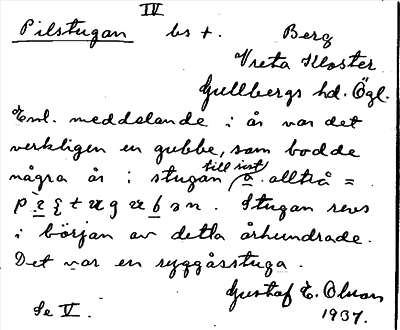 IV
Pilstugan bs +. Berg
Vreta Kloster
Gullbergs hd. Ögl.
Enl. meddelande i år var det
verkligen en gubbe, som bodde
till sist
några år i stugan, a. alltså =
i början av detta århundrade.
Stugan revs
Det var en ryggåsstuga.
Gustaf E. Olsson
Se V. 1937.